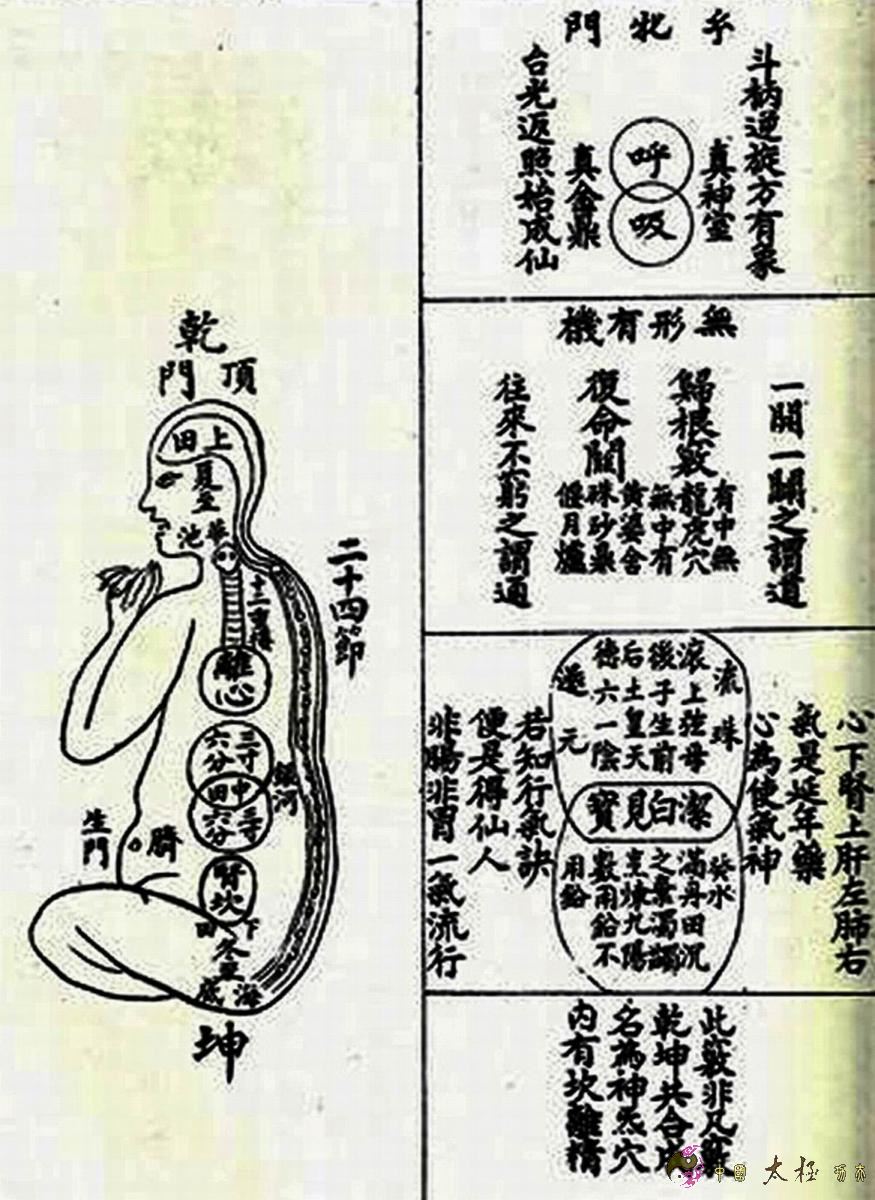 牝門
斗柄逆旋方有象
真神室
呼
吸
真金鼎
台光返照始成仙
無形有機
一一之謂道
歸根竅
有中無
龍虎穴
無中有
復命關
黃婆舍
硃砂鼎
偃月爐
往來不窮之謂通
心下腎上肝左肺右
氣是延年藥
心為使氣神
流珠
上弦母
後子生前
后土皇天
德六一陰
元
潔白見寶
癸水
滿丹田沉
之棄濁
烹煉九陽
數用鉛不
用鉛
若知行氣訣
便是得仙人
非腸非胃一氣流行
此竅非凡竅
乾坤共合成
名為神炁穴
內有坎離精
乾
頂門
上田
夏至
華池
十二重樓
二十四節
離心
三寸
六分
中田
三寸
六分
銀河
臍
生門
腎坎
下田
冬至
海底
坤
中國太極